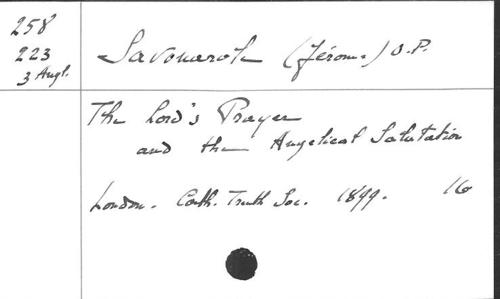 258
223
3 Angl.
Savonarola (Jérome) O.P.
The Lord's Prayer
and the Angelical Salutation
London. Cath. Truth Soc. 1899. 16